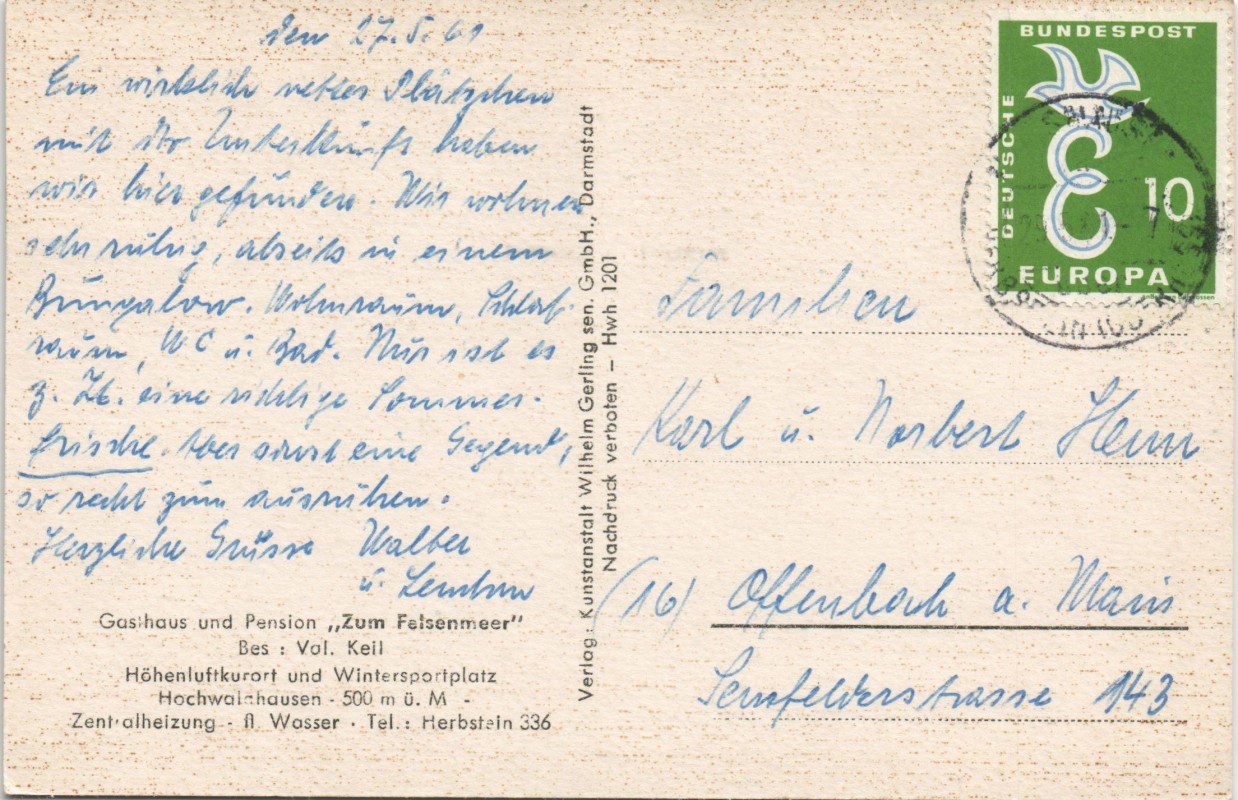 den 27.5.61
Ein wirklich nettes Plätzchen
mit der Unterkunft haben
wir hier gefunden. Wir wohnen
sehr ruhig, abseits in einem
Bungalow. Wohnraum, Schlaf-
raum, WC u. Bad. Nur ist es
z. Zt. eine richtige Sommer-
frische. Aber sonst eine Gegend,
so recht zum ausruhen.
Herzliche Grüsse Walber
u.
Gasthaus und Pension „Zum Felsenmeer"
Bes : Val. Keil
Höhenluftkurort und Wintersportplatz
Hochwaldhausen - 500 m ü. M -
Zentralheizung - fl. Wasser · Tel.: Herbstein 336
Verlag: Kunstanstalt Wilhelm Gerling sen. GmbH., Darmstadt
Nachdruck verboten – Hwh 1201
BUNDESPOST
DEUTSCHE
10
EUROPA
Familien
Karl u. Norbert Henn
(16) Offenbach a. Main
Senefelderstrasse 143